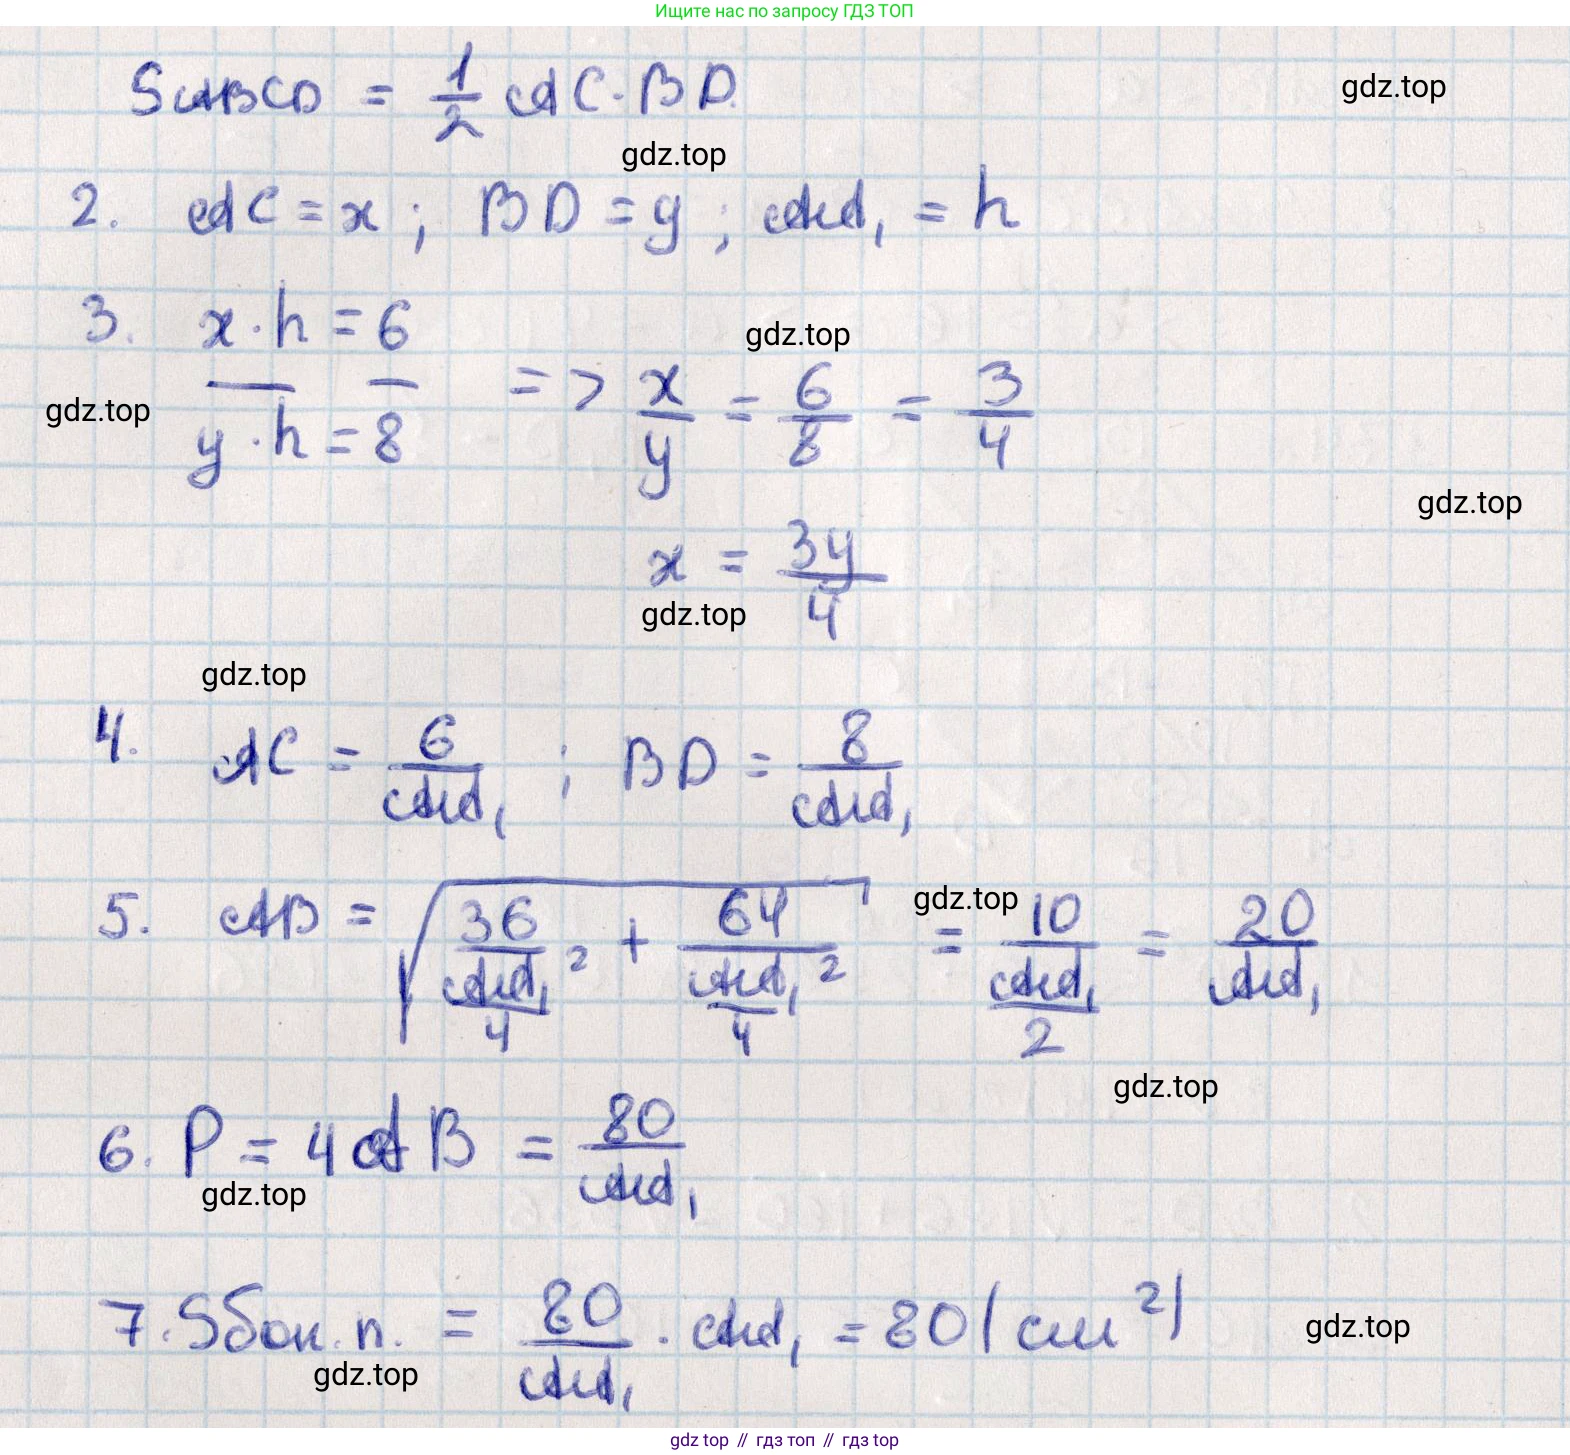 Ищите нас по запросу ГДЗ ТОП
SABCD = 1/2 AC · BD.
gdz.top
gdz.top
2. AC = x ; BD = y ; AA₁ = h
3. x · h = 6
gdz.top
gdz.top
y · h = 8
=> x/y = 6/8 = 3/4
gdz.top
x = 3y/4
gdz.top
gdz.top
4. AC = 6/AA₁ ; BD = 8/AA₁
5. AB = √(36/AA₁²/4 + 64/AA₁²/4) = 10/AA₁/2 = 20/AA₁
gdz.top
gdz.top
6. P = 4AB = 80/AA₁
gdz.top
7. Sбок. п. = 80/AA₁ · AA₁ = 80 (см²)
gdz.top
gdz.top
gdz top // гдз топ // gdz top